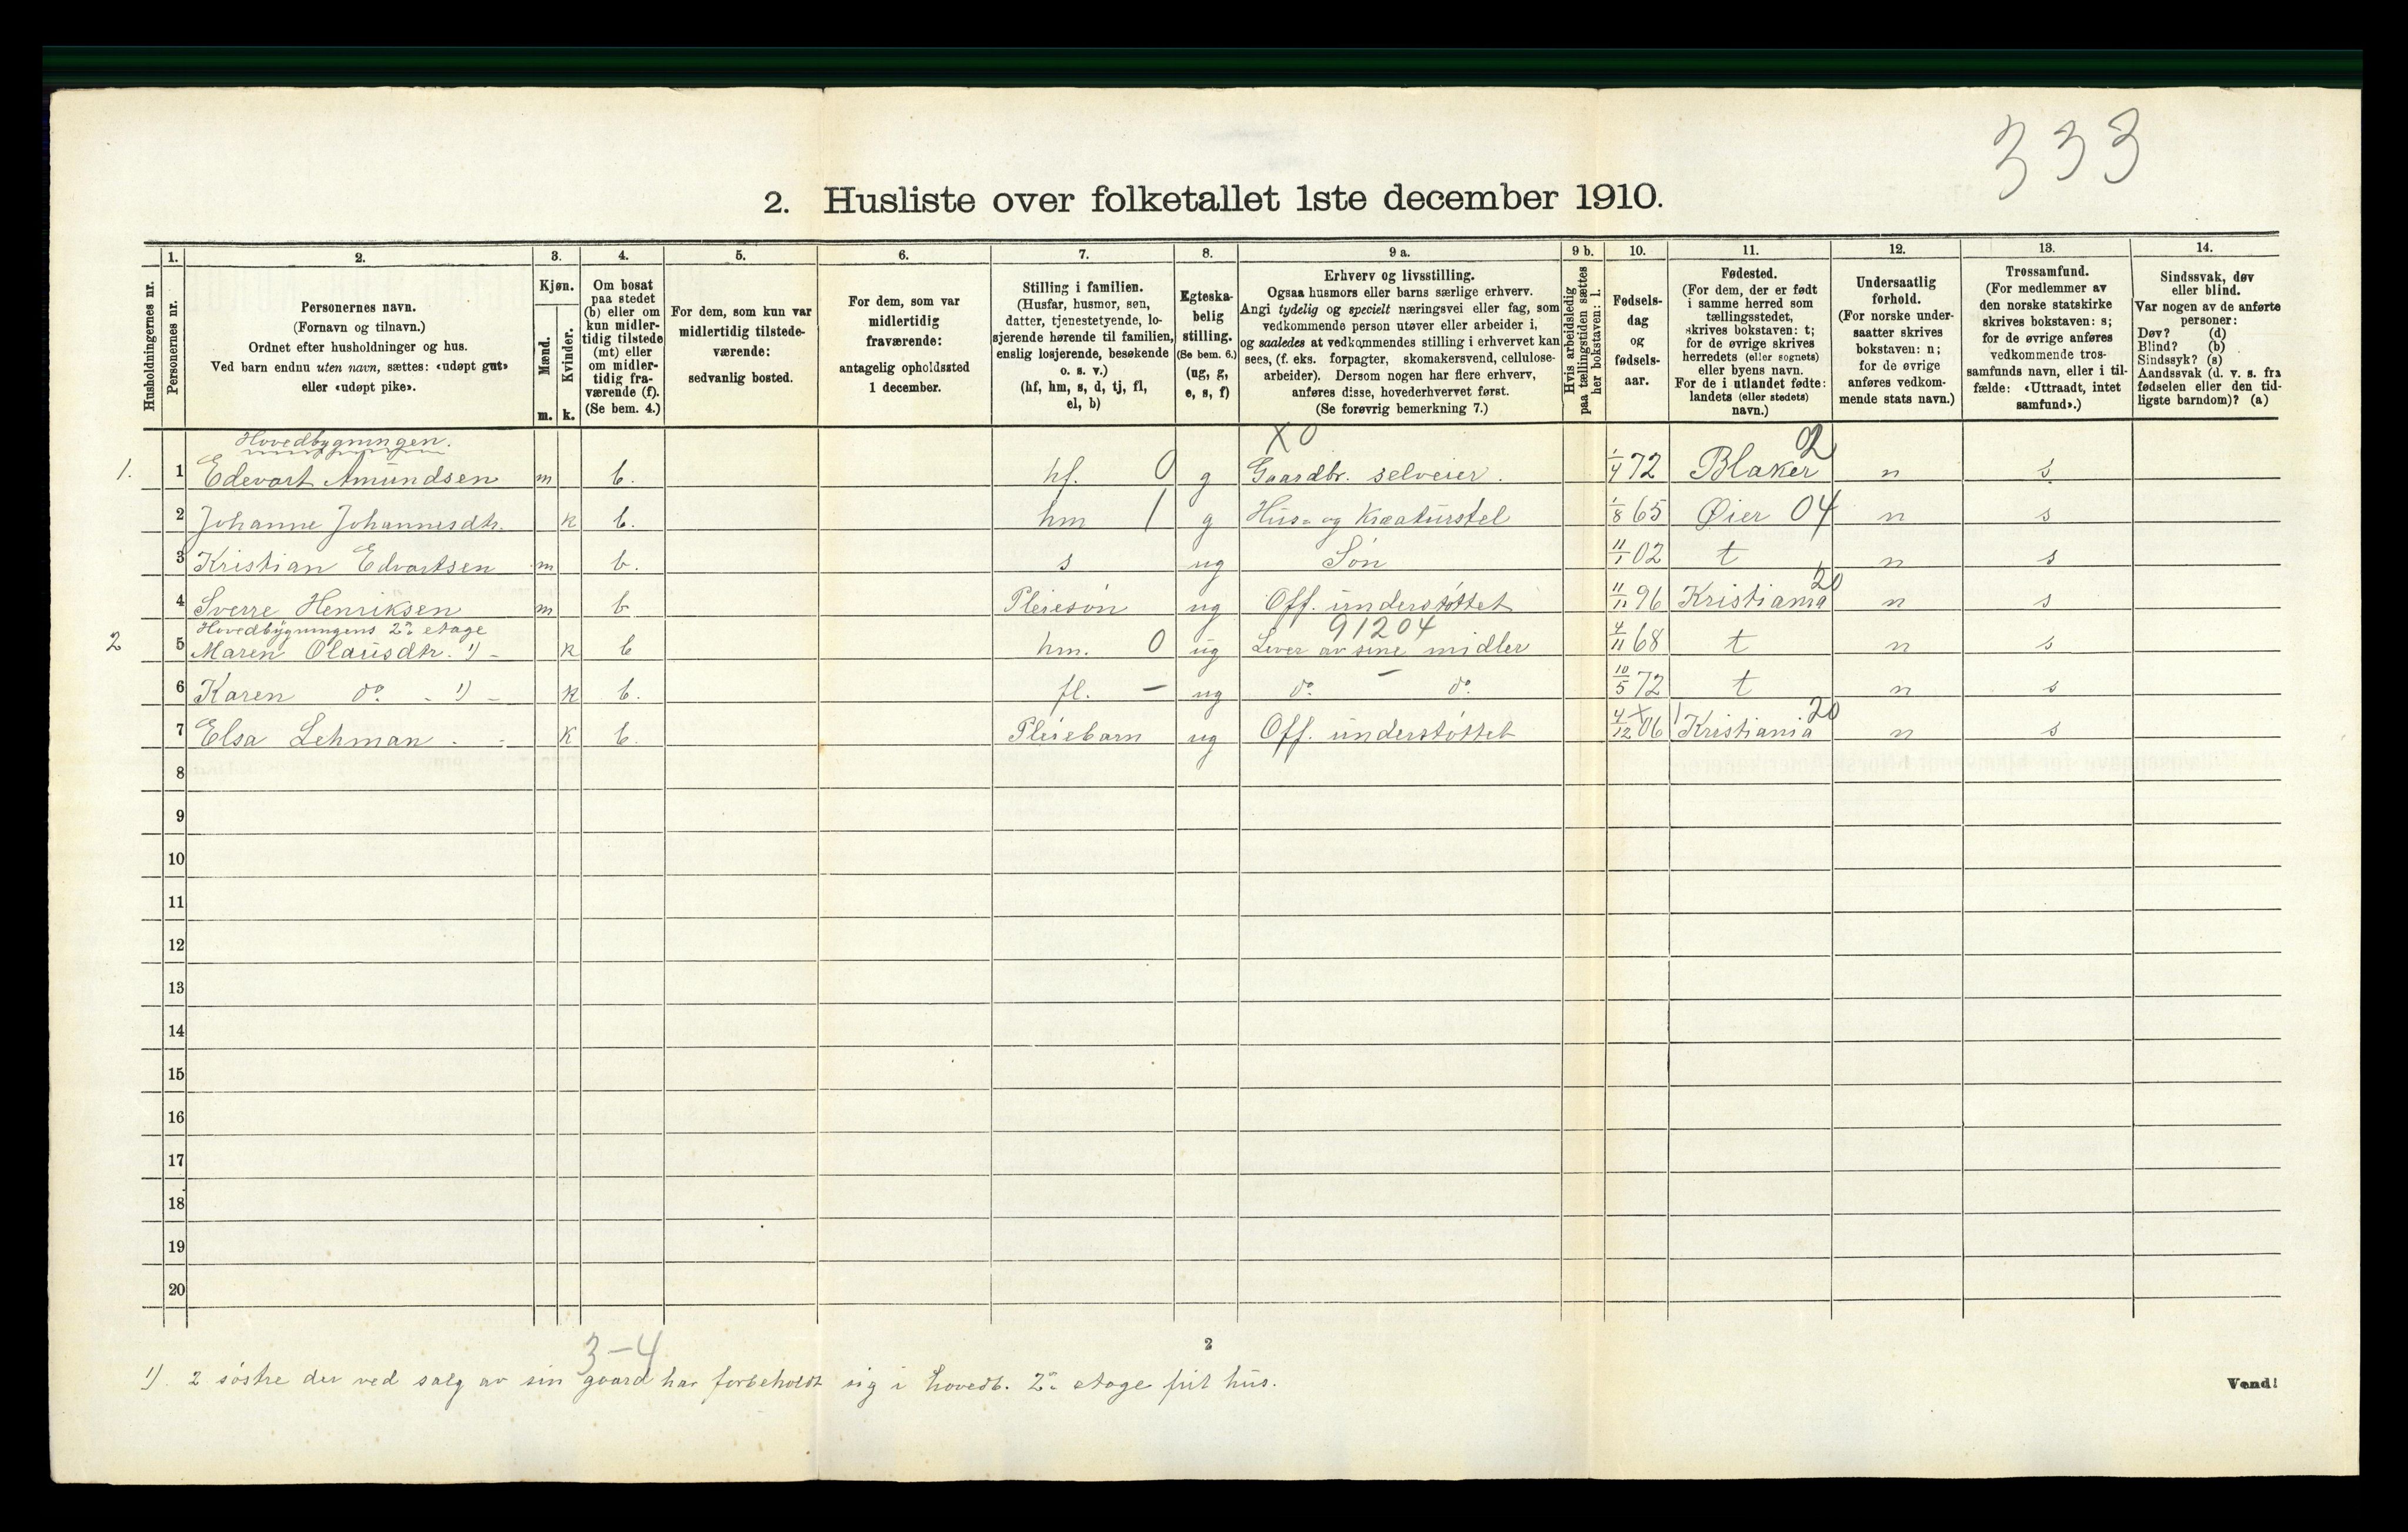 333
2. Husliste over folketallet 1ste december 1910.
Husholdningernes nr.
1.
Personernes nr.
2.
Personernes navn.
(Fornavn og tilnavn.)
Ordnet efter husholdninger og hus.
Ved barn endnu uten navn, sættes: «udøpt gut»
eller «udøpt pike».
3.
Kjøn.
Mænd.
m.
Kvinder.
k.
4.
Om bosat
paa stedet
(b) eller om
kun midler-
tidig tilstede
(mt) eller
om midler-
tidig fra-
værende (f).
(Se bem. 4.)
5.
For dem, som kun var
midlertidig tilstede-
værende:
sedvanlig bosted.
6.
For dem, som var
midlertidig
fraværende:
antagelig opholdssted
1 december.
7.
Stilling i familien.
(Husfar, husmor, søn,
datter, tjenestetyende, lo-
sjerende hørende til familien,
enslig losjerende, besøkende
o. s. v.)
(hf, hm, s, d, tj, fl,
el, b)
8.
Egteska-
belig
stilling.
(Se bem. 6.)
(ug, g,
e, s, f)
9 a.
Erhverv og livsstilling.
Ogsaa husmors eller barns særlige erhverv.
Angi tydelig og specielt næringsvei eller fag, som
vedkommende person utøver eller arbeider i,
og saaledes at vedkommendes stilling i erhvervet kan
sees, (f. eks. forpagter, skomakersvend, cellulose-
arbeider). Dersom nogen har flere erhverv,
anføres disse, hovederhvervet først.
(Se forøvrig bemerkning 7.)
9 b.
Hvis arbeidsledig
paa tællingstiden sættes
her bokstaven: l.
10.
Fødsels-
dag
og
fødsels-
aar.
11.
Fødested.
(For dem, der er født
i samme herred som
tællingsstedet,
skrives bokstaven: t;
for de øvrige skrives
herredets (eller sognets)
eller byens navn.
For de i utlandet fødte:
landets (eller stedets)
navn.)
12.
Undersaatlig
forhold.
(For norske under-
saatter skrives
bokstaven: n;
for de øvrige
anføres vedkom-
mende stats navn.)
13.
Trossamfund.
(For medlemmer av
den norske statskirke
skrives bokstaven: s;
for de øvrige anføres
vedkommende tros-
samfunds navn, eller i til-
fælde: «Uttraadt, intet
samfund».)
14.
Sindssvak, døv
eller blind.
Var nogen av de anførte
personer:
Døv? (d)
Blind? (b)
Sindssyk? (s)
Aandssvak (d. v. s. fra
fødselen eller den tid-
ligste barndom)? (a)
Hovedbygningen. X 0 02
1. 1 Edevart Amundsen m b. hf. 0 g Gaardbr. selveier. 1/4 72 Blaker n s
2 Johanne Johannesdtr. k b. hm 1 g Hus- og Kreaturstel 1/8 65 Øier 04 n s
3 Kristian Edvartsen m b. s ug Søn 11/1 02 t n s
4 Sverre Henriksen m b Pleiesøn ug Off. understøttet 11/11 96 Kristiania 20 n s
Hovedbygningens 2n etage 91204
2 5 Maren Olausdtr. 1) - k b hm. 0 ug Lever av sine midler 4/11 68 t n s
6 Karen do - 1) - k b. fl. - ug do - do 10/5 72 t n s
7 Elsa Lehman - - k b. Pleiebarn ug Off. understøttet 4/12 06 Kristiania 20 n s
8
9
10
11
12
13
14
15
16
17
18
19
20
3-4
2
1). 2 søstre der ved salg av sin gaard har forbeholdt sig i hovedb. 2n etage frit hus.
Vend!